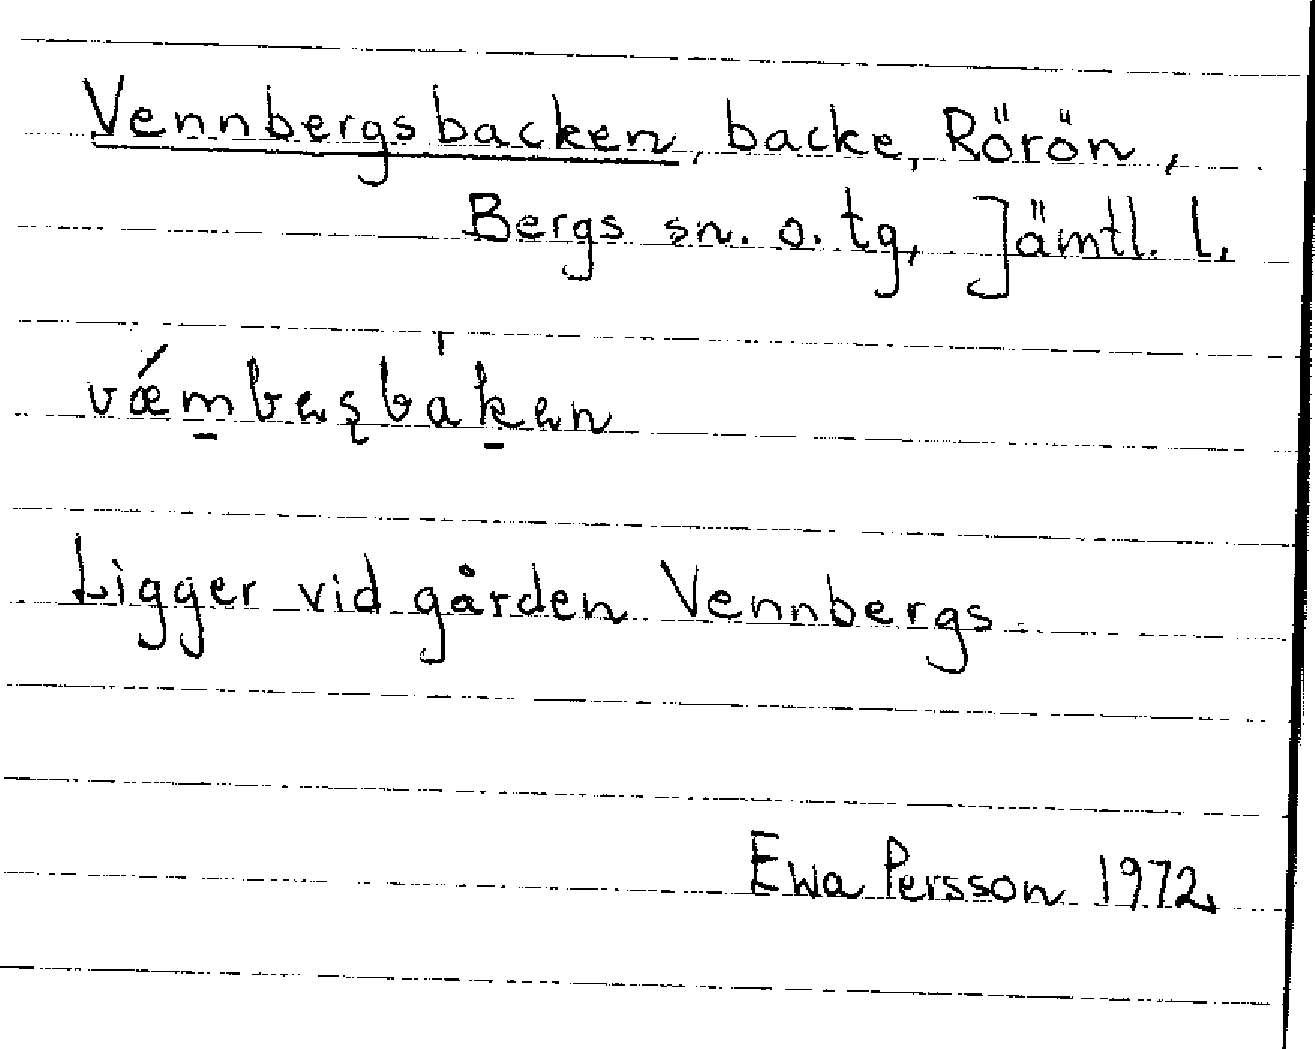 Vennbergsbacken, backe, Rörön,
Bergs sn. o. tg, Jämtl. l.
vǽm̱bəʂba̍ḵən
Ligger vid gården Vennbergs
Ewa Persson 1972.